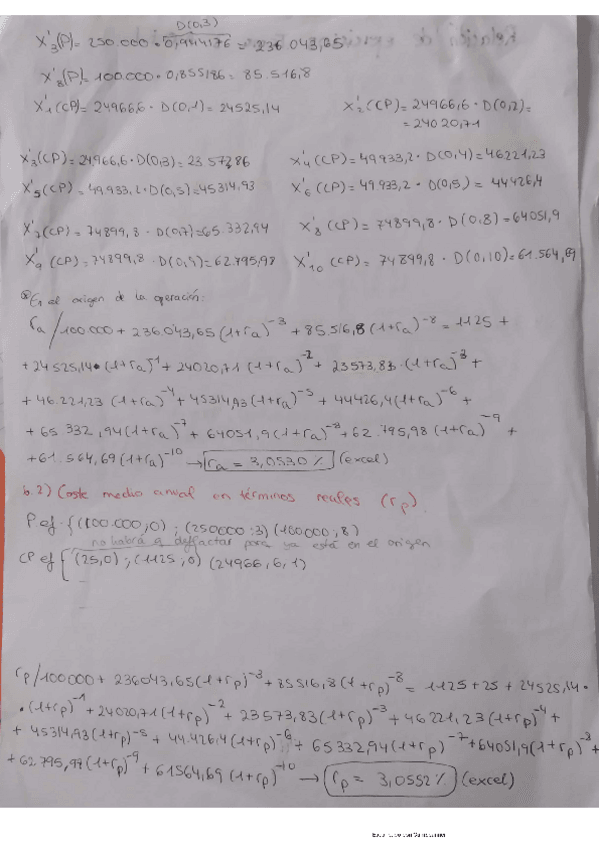 D(0,3)
X'3(P)= 250.000 · 0,944176 = 236.043,65
X'8(P)= 100.000 · 0,855186 = 85.516,8
X'1(CP)= 24966,6 · D(0,1) = 24525,14 X'2(CP)= 24966,6 · D(0,2)=
= 24020,71
X'3(CP)= 24966,6 · D(0,3)= X'4(CP)= 49933,2 · D(0,4)= 46221,23
X'5(CP)= 49.933,2 · D(0,5)= 45314,93 X'6(CP)= 49933,2 · D(0,5)= 44426,4
X'7(CP)= 74899,8 · D(0,7)=65.332,94 X'8(CP)= 74899,8 · D(0,8)= 64051,9
X'9(CP)= 74899,8 · D(0,9)= 62.795,97 X'10(CP)= 74899,8 · D(0,10)= 61.564,69
En el origen de la operación:
ra/100.000 + 236.043,65 (1+ra)^-3 + 85.516,8 (1+ra)^-8 = 1125 +
+ 24525,14 · (1+ra)^-1 + 24020,71 (1+ra)^-2 + 23573,83 · (1+ra)^-3 +
+ 46.221,23 (1+ra)^-4 + 45314,93 (1+ra)^-5 + 44426,4 (1+ra)^-6 +
+ 65332,94 (1+ra)^-7 + 64051,9 (1+ra)^-8 + 62.795,98 (1+ra)^-9 +
+ 61.564,69 (1+ra)^-10 → ra = 3,0530 % (excel)
b.2) Coste medio anual en términos reales (rp).
P ef {(100.000,0) ; (250000;3) (100000;8)
no habrá q deflactar porq ya está en el origen
CP ef {(25,0) ; (1125,0) (24966,6,1)
rp/100000 + 236043,65 (1+rp)^-3 + 85516,8 (1+rp)^-8 = 1125 + 25 + 24525,14 ·
· (1+rp)^-1 + 24020,71 (1+rp)^-2 + 23573,83 (1+rp)^-3 + 46221,23 (1+rp)^-4 +
+ 45314,93 (1+rp)^-5 + 44.426,4 (1+rp)^-6 + 65332,94 (1+rp)^-7 + 64051,9 (1+rp)^-8 +
+ 62.795,99 (1+rp)^-9 + 61564,69 (1+rp)^-10 → rp = 3,0552 % (excel)